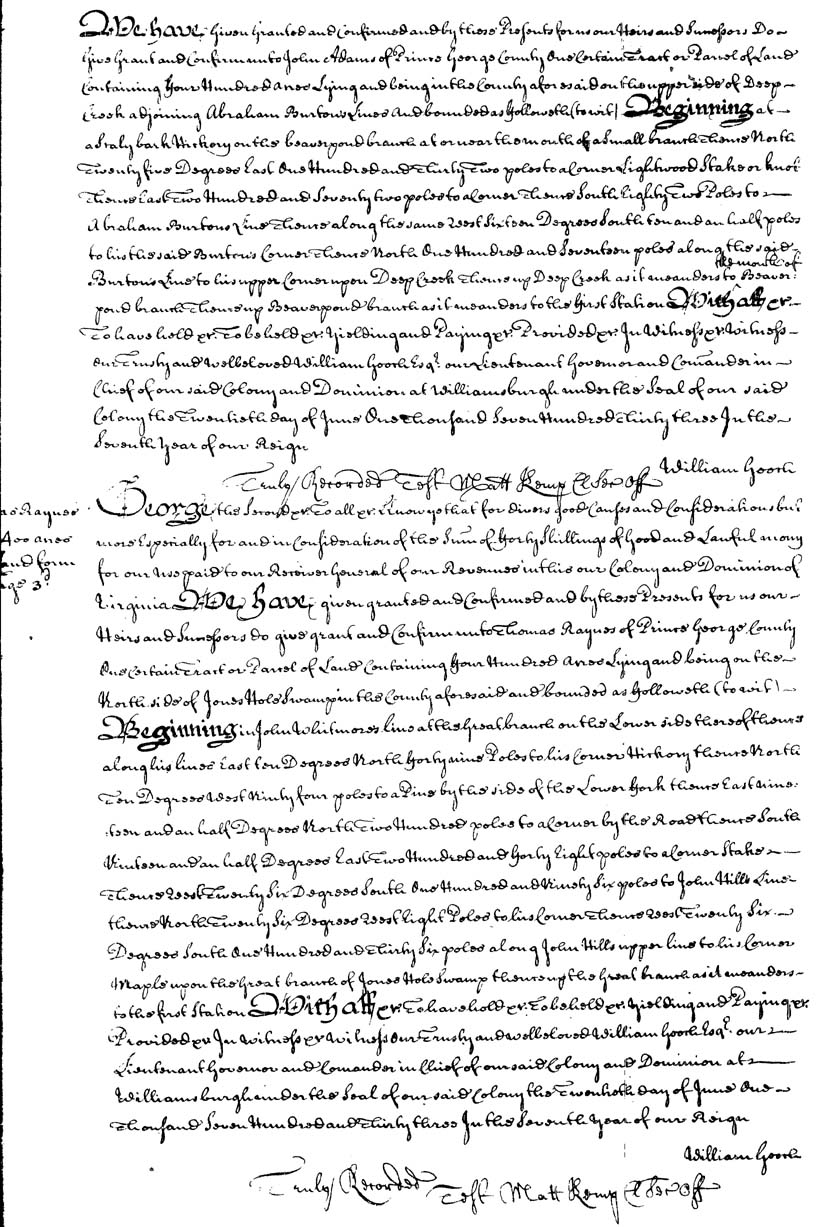 We have given granted and Confirmed and by these Presents for us our Heirs and Successors Do
Give Grant and Confirm unto John Adams of Prince George County One Certain Tract or Parcel of Land
Containing Four Hundred Acres Lying and being in the County aforesaid on the upper side of Deep
Creek adjoining Abraham Burtons Lines And bounded as Followeth (to wit) Beginning at
a Scaly bark Hickory on the beaverpond branch at or near the mouth of a Small branch Thence North
Twenty five Degrees East One Hundred and Thirty Two poles to a Corner Lightwood Stake or knot
Thence East Two Hundred and Seventy two poles to a Corner Thence South Eighty Two Poles to
Abraham Burtons Line Thence along the same West Sixteen Degrees South ten and an half poles
to his the said Burtons Corner Thence North One Hundred and Seventeen poles along the said
the mouth of
Burtons Line to his upper Corner upon Deep Creek Thence up Deep Creek as it meanders to Beaver:
pond branch Thence up Beaverpond branch as it meanders to the First Station With all &c.
To have hold &c. To be held &c. Yielding and Paying &c. Provided &c. In Witness &c. Witness
our Trusty and Welbeloved William Gooch Esqr. our Lieutenant Governor and Comander in
Chief of our said Colony and Dominion at Williamsburgh under the Seal of our said
Colony the Twentieth day of June One Thousand Seven Hundred Thirty three In the
Seventh Year of our Reign
William Gooch
Truly Recorded Test Matt Kemp Cl Sec Off
as Raynes
400 acres
and form
age 3d
George the Second &c. To all &c. Know ye that for divers good Causes and Considerations but
more Especially for and in Consideration of the Sum of Forty Shillings of Good and Lawful mony
for our Use paid to our Receiver General of our Revenues in this our Colony and Dominion of
Virginia We Have given granted and Confirmed and by these Presents for us our
Heirs and Successors do give grant and Confirm unto Thomas Raynes of Prince George County
One Certain Tract or Parcel of Land Containing Four Hundred Acres Lying and being on the
North side of Jones Hole Swamp in the County aforesaid and bounded as Followeth (to wit)
Beginning in John Whitmores line at the Great branch on the Lower side thereof thence
along his lines East ten Degrees North Forty nine Poles to his Corner Hickory thence North
Ten Degrees West Ninty four poles to a Pine by the side of the Lower Fork thence East nine:
:teen and an half Degrees North Two Hundred poles to a Corner by the Road thence South
Ninteen and an half Degrees East Two Hundred and Forty Eight poles to a Corner Stake
Thence West Twenty Six Degrees South One Hundred and Ninety Six poles to John Hills Line
thence North Twenty Six Degrees West Eight Poles to his Corner Thence West Twenty Six
Degrees South One Hundred and Thirty Six poles along John Hills upper line to his Corner
Maple upon the Great branch of Jones Hole Swamp thence up the Great branch as it meanders
to the first Station With all &c. To have hold &c. To be held &c. Yielding and Paying &c.
Provided &c. In Witness &c. Witness Our Trusty and welbeloved William Gooch Esqr. our
Lieutenant Governor and Comander in Chief of our said Colony and Dominion at
Williamsburgh under the Seal of our said Colony the Twentieth day of June One
Thousand Seven Hundred and Thirty three In the Seventh Year of our Reign
William Gooch
Truly Recorded Test Matt Kemp Cl Sec Off